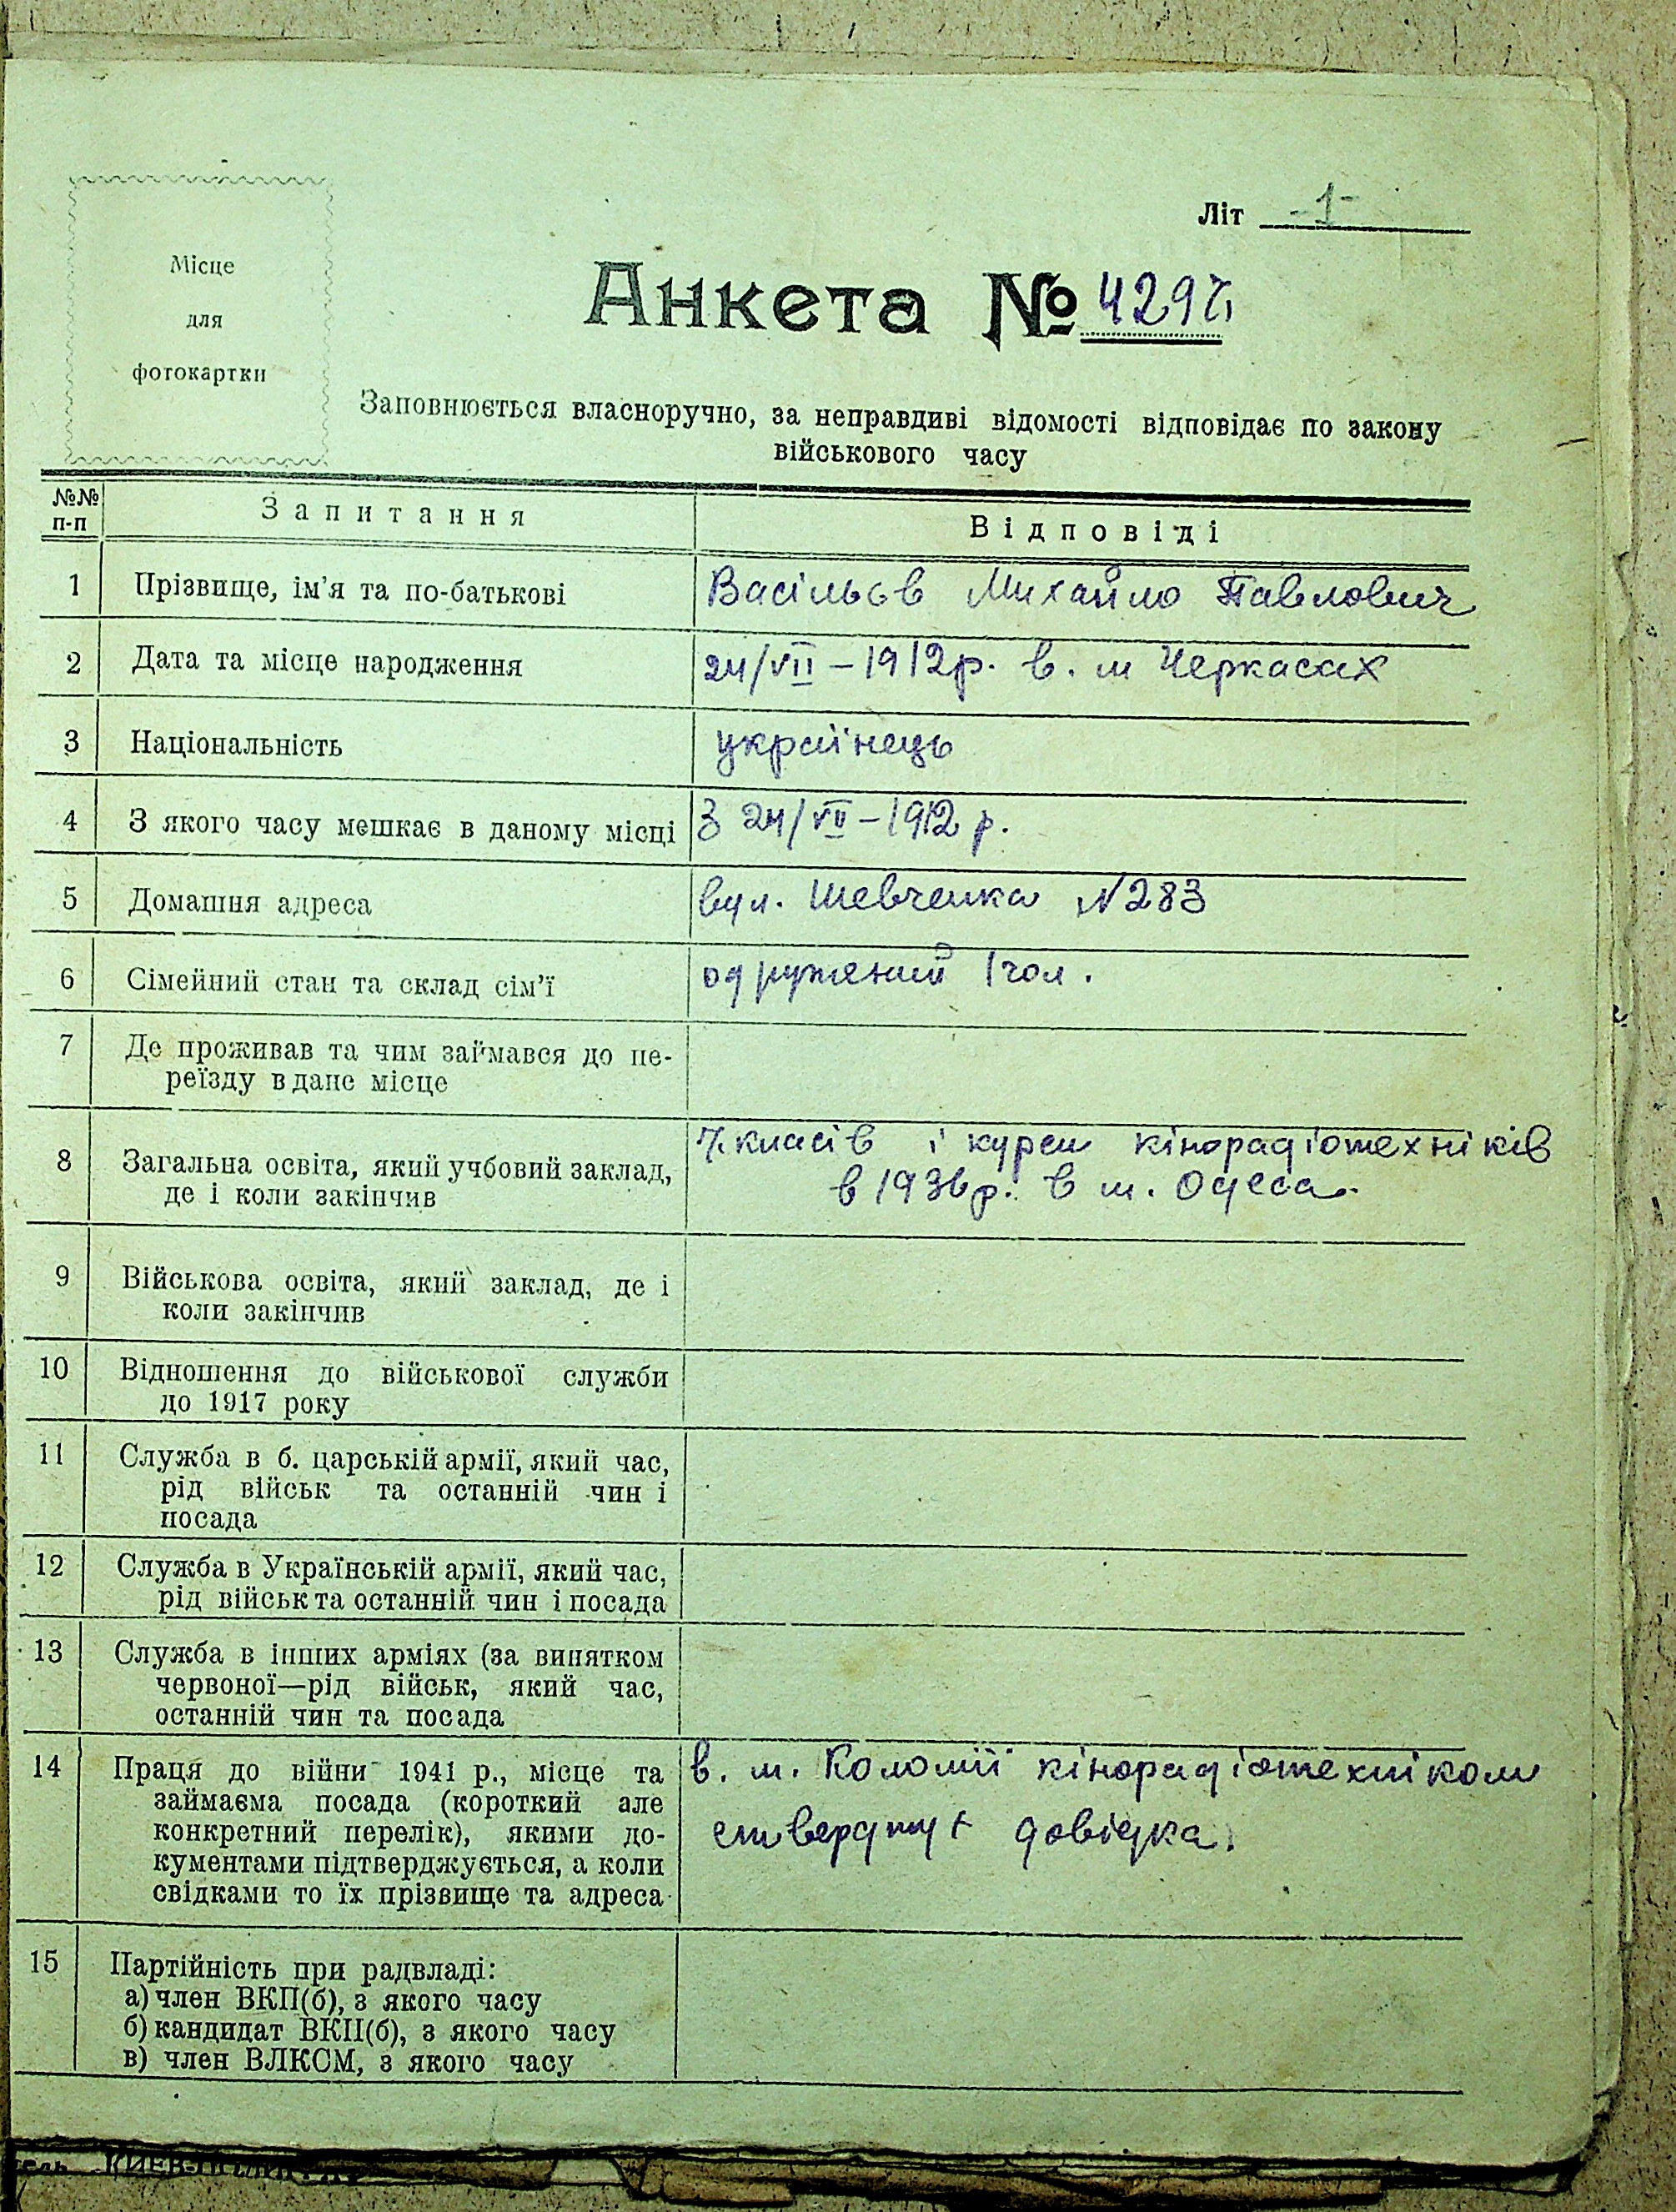 Літ -1-
Місце
для
фотокартки
Анкета № 4297
Заповнюється власноручно, за неправдиві відомості відповідає по закону
військового часу
№№ п-п Запитання Відповіді
1 Прізвище, ім'я та по-батькові Васільєв Михайло Павлович
2 Дата та місце народження 24/VII – 1912 р. в. м Черкасах
3 Національність українець
4 З якого часу мешкає в даному місці З 24/VII – 1912 р.
5 Домашня адреса вул. Шевченка N 283
6 Сімейний стан та склад сім'ї одружений 1 чол.
7 Де проживав та чим займався до пе-
реїзду в дане місце
8 Загальна освіта, який учбовий заклад, 7 класів і курси кінорадіотехніків
де і коли закінчив в 1936 р. в м. Одеса.
9 Військова освіта, який заклад, де і
коли закінчив
10 Відношення до військової служби
до 1917 року
11 Служба в б. царській армії, який час,
рід військ та останній чин і
посада
12 Служба в Українській армії, який час,
рід військ та останній чин і посада
13 Служба в інших арміях (за винятком
червоної—рід військ, який час,
останній чин та посада
14 Праця до війни 1941 р., місце та в. м. Коломиї кінорадіотехніком
займаєма посада (короткий але
конкретний перелік), якими до- довідка.
кументами підтверджується, а коли
свідками то їх прізвище та адреса
15 Партійність при радвладі:
а) член ВКП(б), з якого часу
б) кандидат ВКП(б), з якого часу
в) член ВЛКСМ, з якого часу